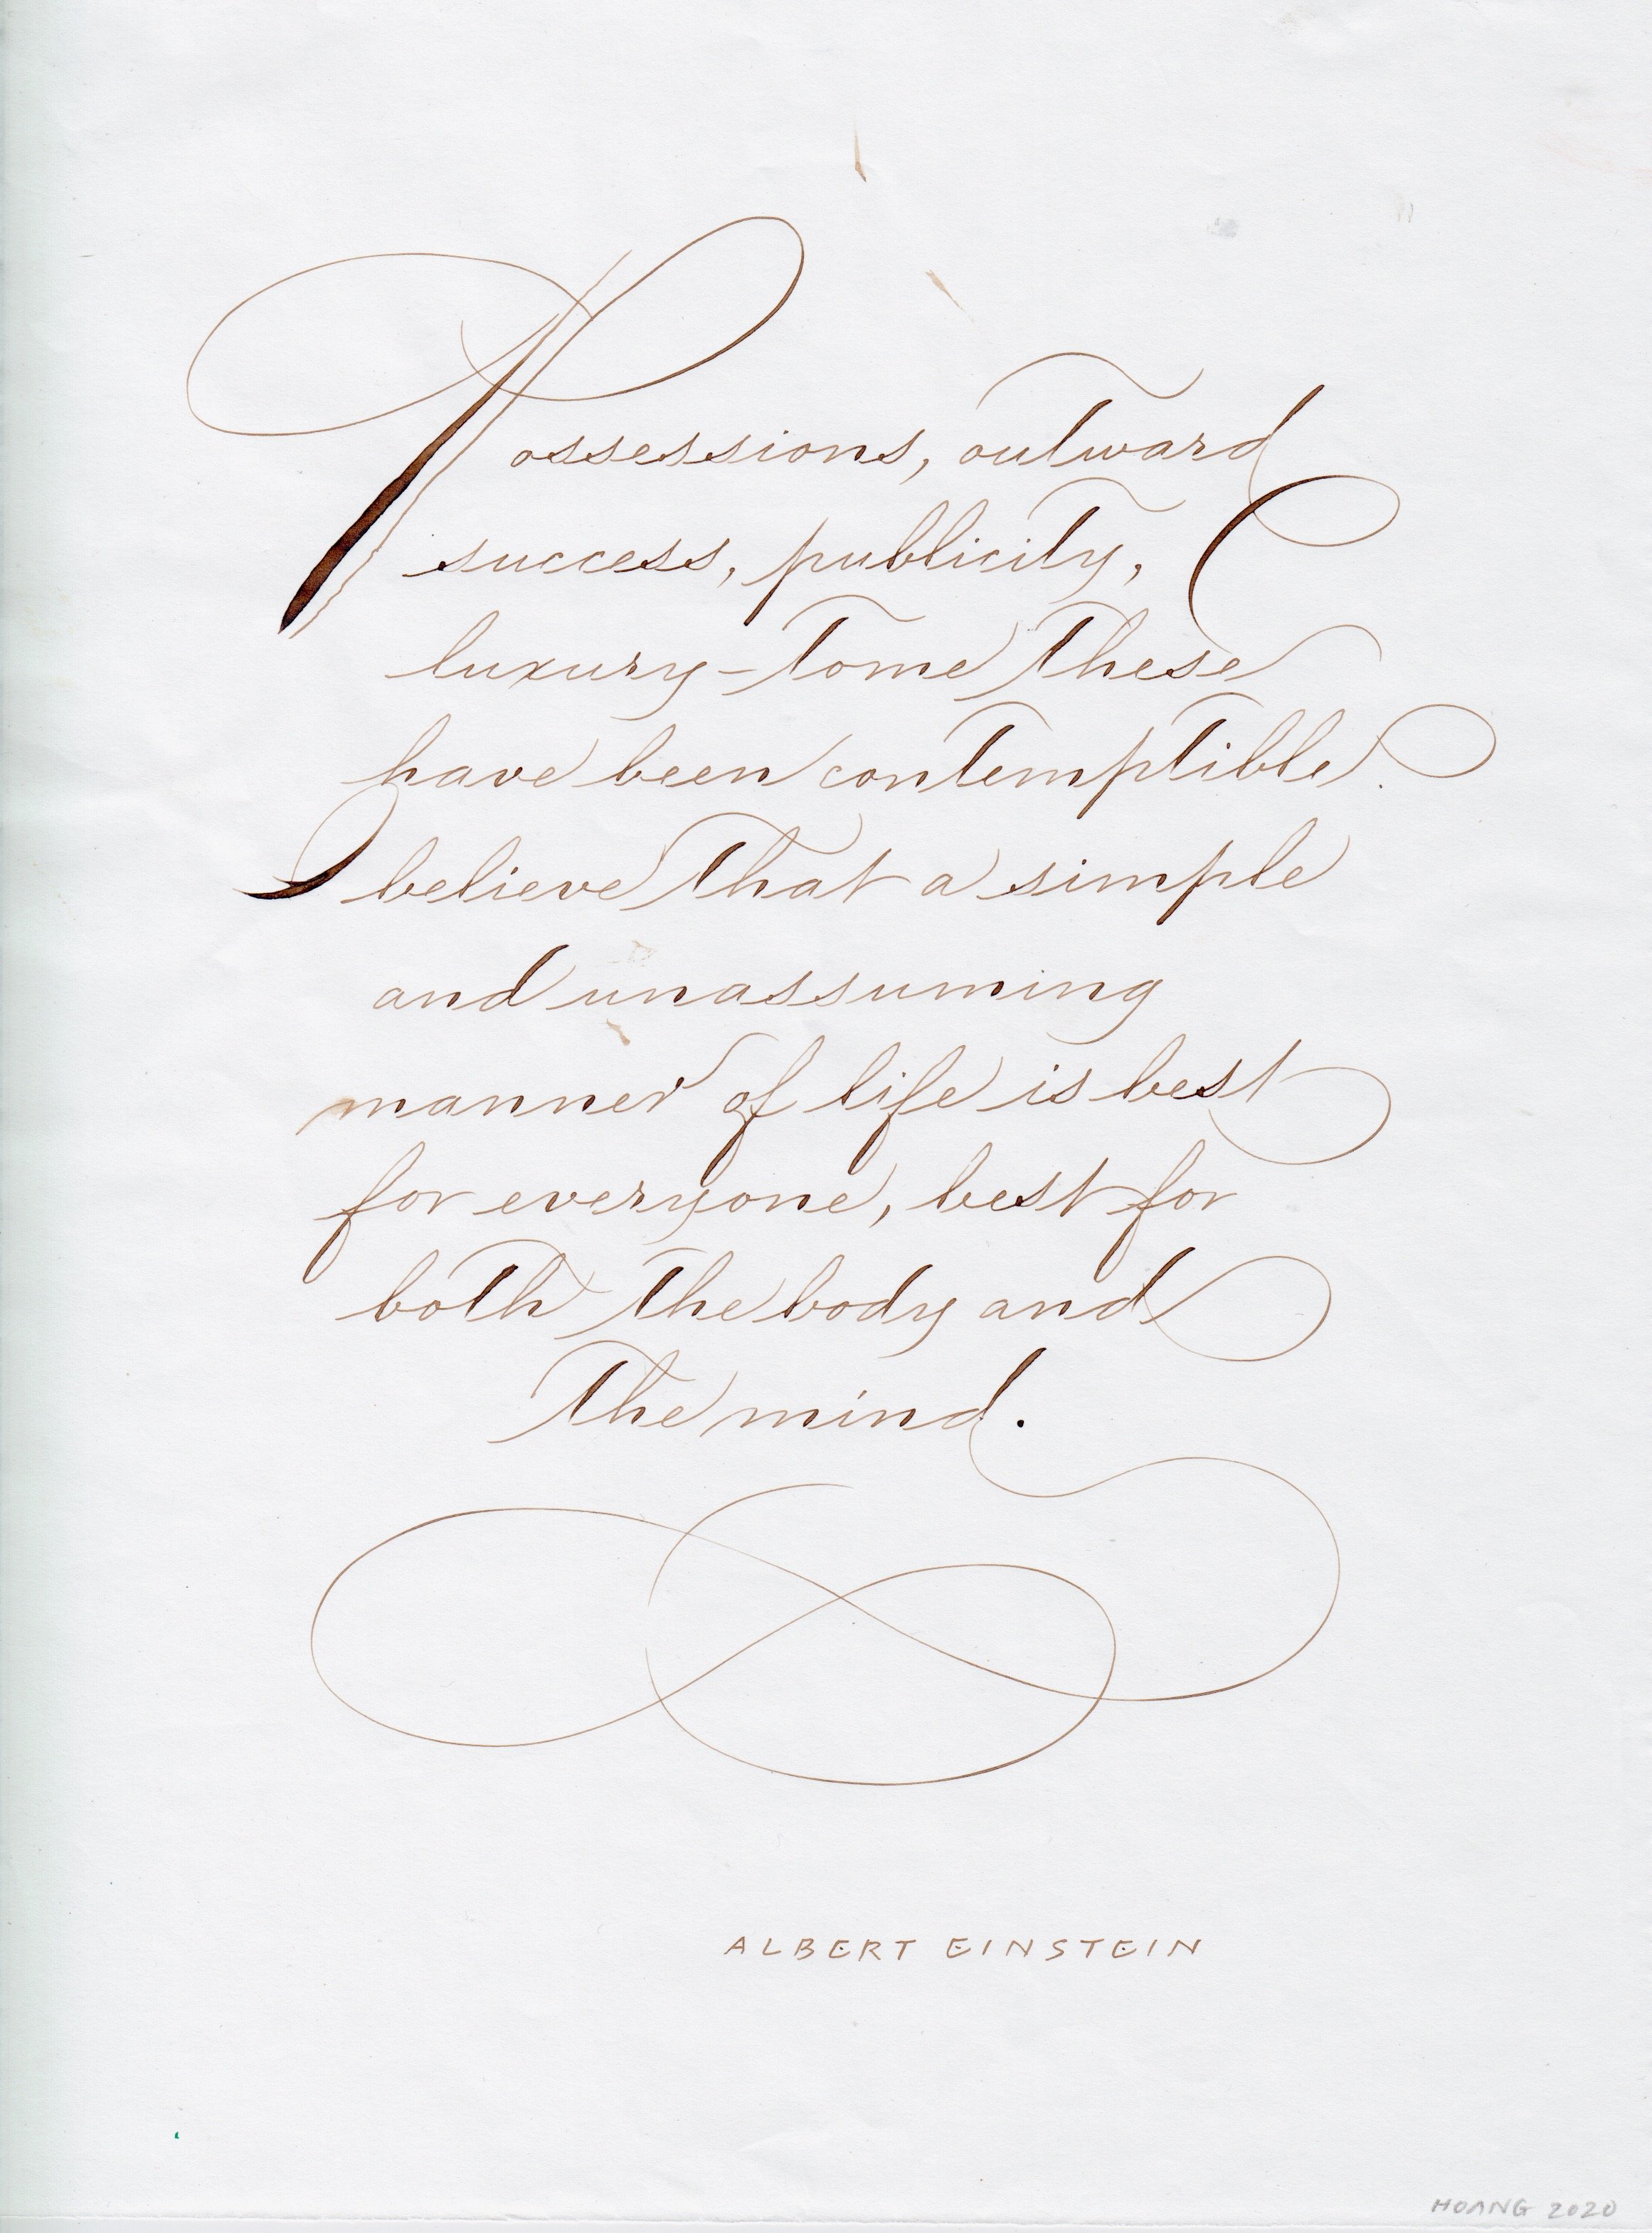 Possessions, outward
success, publicity,
luxury - to me these
have been contemptible.
I believe that a simple
and unassuming
manner of life is best
for everyone, best for
both the body and
the mind.
ALBERT EINSTEIN
HOANG 2020